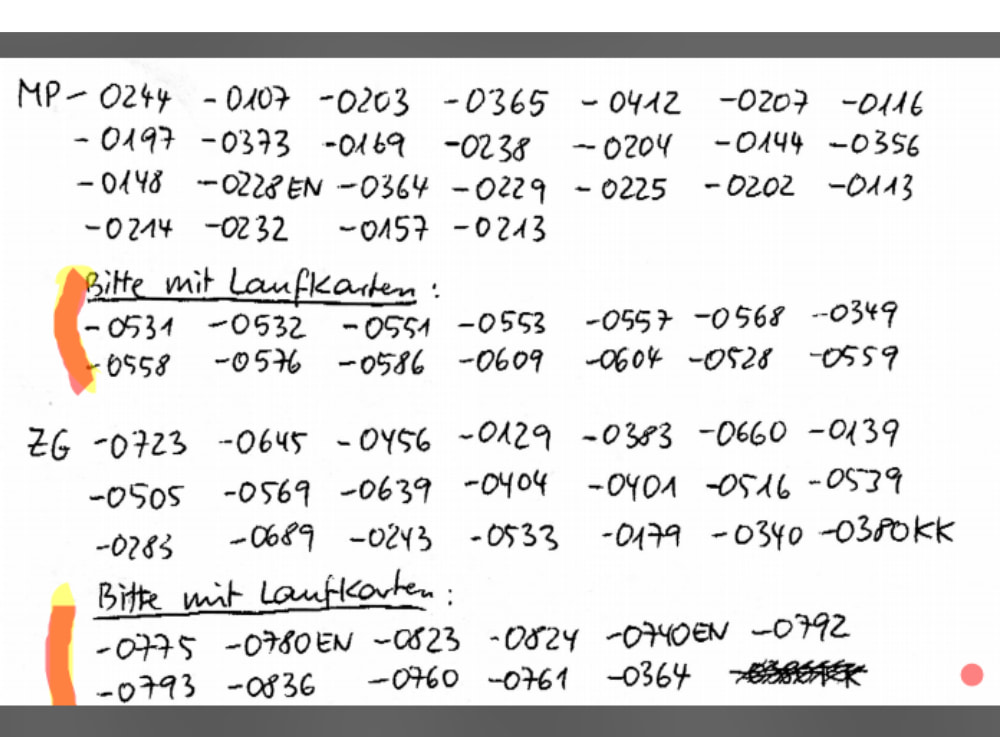 MP - 0244 - 0107 -0203 -0365 - 0412 -0207 -0116
- 0197 -0373 -0169 -0238 - 0204 -0144 -0356
- 0148 -0228EN -0364 -0229 - 0225 -0202 -0113
-0214 -0232 -0157 -0213
Bitte mit Laufkarten :
-0531 -0532 -0551 -0553 -0557 -0568 -0349
-0558 -0576 -0586 -0609 -0604 -0528 -0559
ZG -0723 -0645 -0456 -0129 -0383 -0660 -0139
-0505 -0569 -0639 -0404 -0401 -0516 -0539
-0283 -0689 -0243 -0533 -0179 -0340 -0380KK
Bitte mit Laufkarten :
-0775 -0780EN -0823 -0824 -0740EN -0792
-0793 -0836 -0760 -0761 -0364